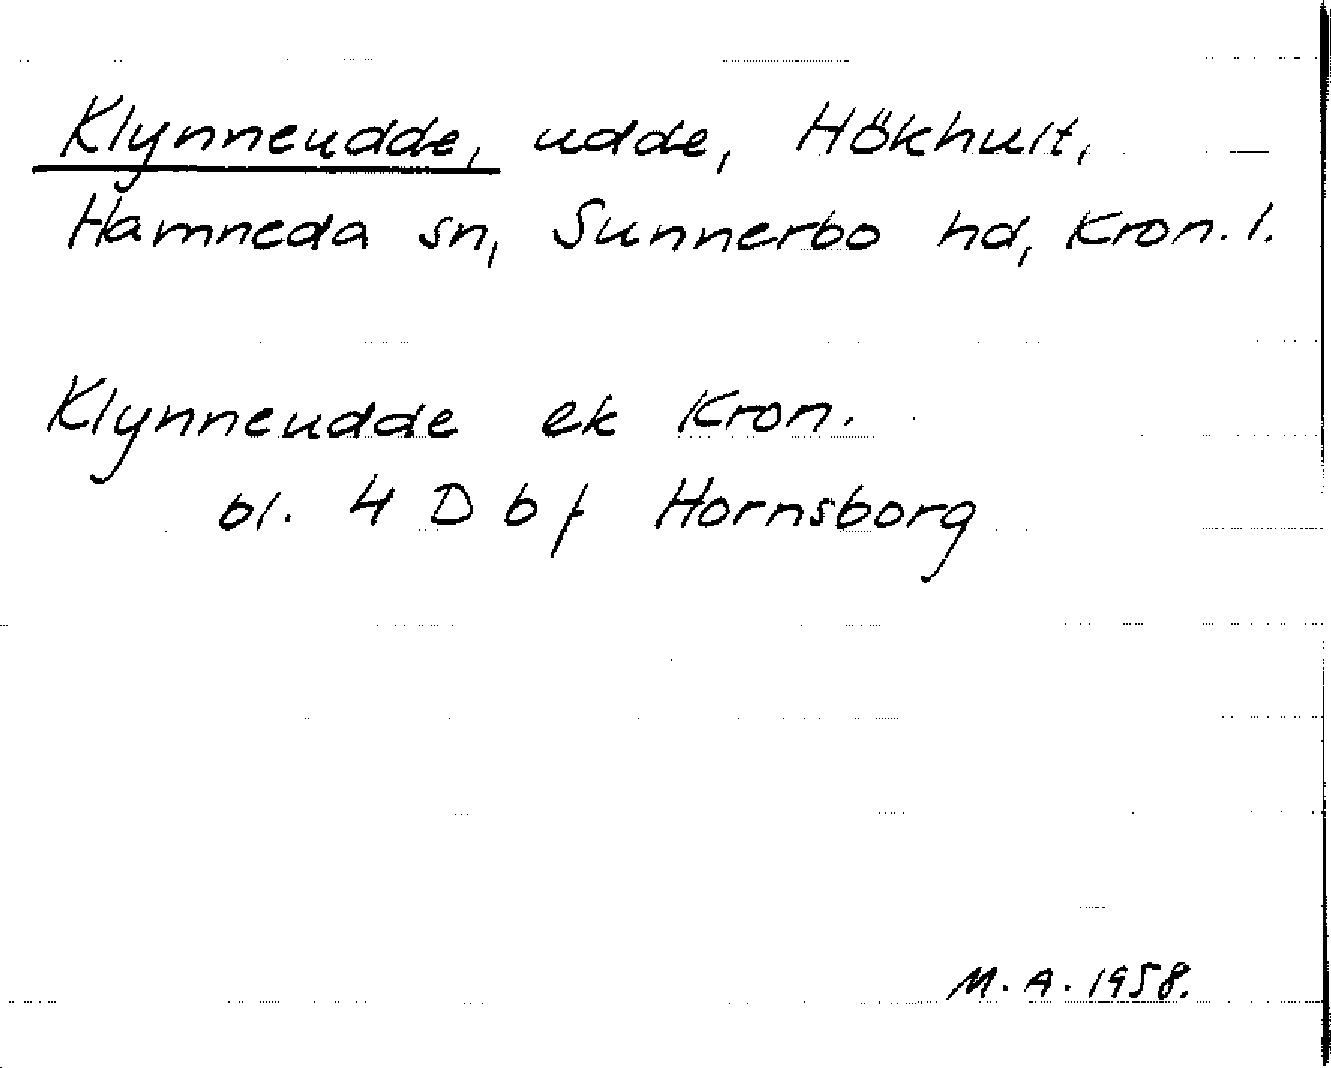 Klynneudde, udde, Hökhult,
Hamneda sn, Sunnerbo hd, Kron. l.
Klynneudde ek Kron.
bl. 4 D b f Hornsborg
M. A. 1958.